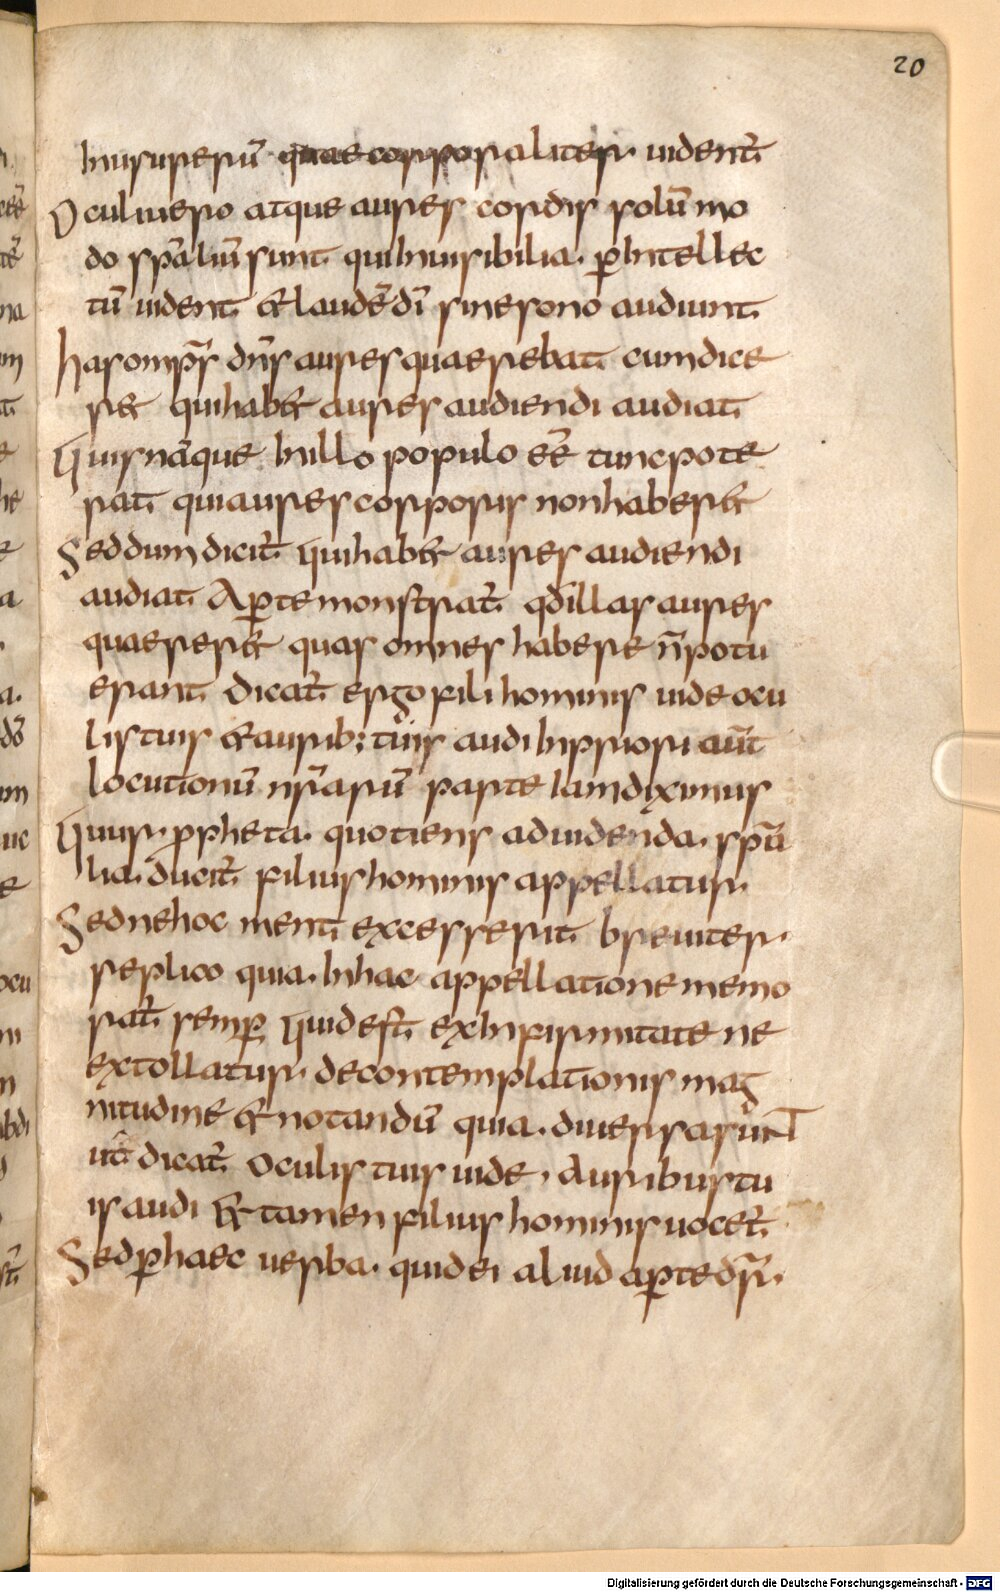 20
In usu rerū quae corporaliter uident̄
Oculi uero atque aures cordis solū mo
do sp̄aliū sunt qui inuisibilia. ꝑ intellec
tū uident & laudē dī sine sono audiunt
has omp̄s dn̄s aures quaerebat cum dice
r& qui hab& aures audiendi audiat
Quis nāque in illo populo eē tunc pote
rat qui aures corporis non haber&
Sed dum dicit̄ qui hab& aures audiendi
audiat Aꝑte monstrat̄ qđ illas aures
quaerer& quas omnes habere n̄ potu
erant Dicat̄ ergo fili hominis uide ocu
lis tuis & aurib; tuis audi In priori aūt
locutionū nr̄arū parte Iam diximus
Quur. ꝓpheta. quotiens ad uidenda. sp̄a
lia. ducit̄ filius hominis appellatur.
Sed ne hoc ment excesserit breuiter.
replico quia. In hac appellatione memo
rat̄ semꝑ Quid est ex Infirmitate ne
extollatur. de contemplationis mag
nitudine & notandū quia. diuersarū
ut dicat̄ Oculis tuis uide. Auribus tu
is audi & tamen filius hominis uocet̄
Sed ꝑ haec uerba. quid ei aliud aꝑte dr̄.
Digitalisierung gefördert durch die Deutsche Forschungsgemeinschaft - DFG